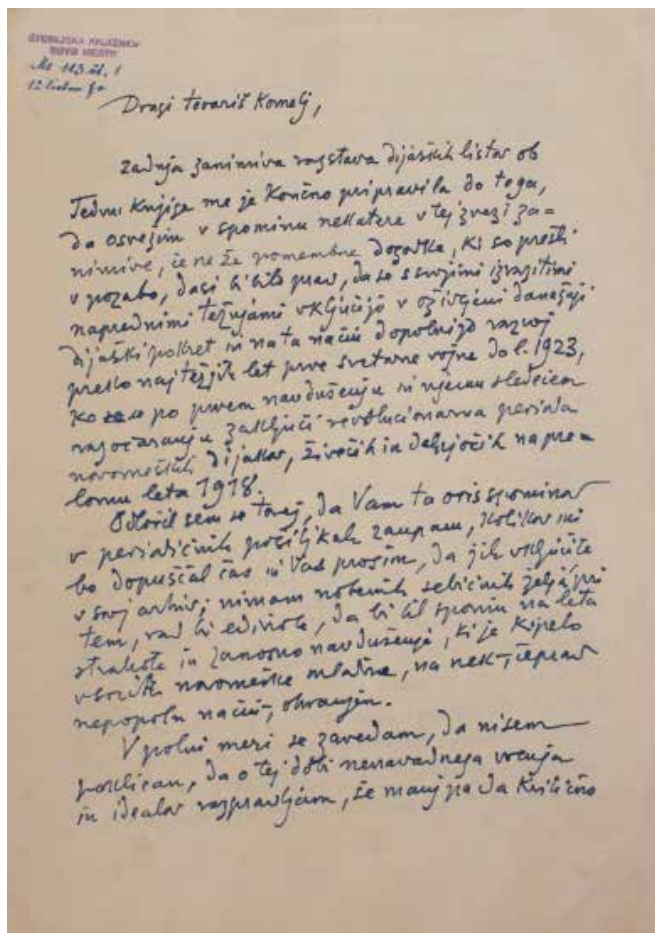 ŠTUDIJSKA KNJIŽNICA
NOVO MESTO
Ms 123 št. 1
12 listov
Dragi tovariš Komelj,
zadnja zanimiva razstava dijaških listov ob
Tednu knjige me je končno pripravila do tega,
da osvežim v spominu nekatere v tej zvezi za=
nimive, če ne že pomembne dogodke, ki so prešli
v pozabo, dasi bi bilo prav, da se s svojimi izrazitimi
naprednimi težnjami vključijo v oživljeni današnji
dijaški pokret in na ta način dopolnijo razvoj
preko najtežjih let prve svetovne vojne do l. 1923,
ko se po prvem navdušenju in njemu sledečem
razočaranju zaključi revolucionarna perioda
novomeških dijakov, živečih in delujočih na pre=
lomu leta 1918.
Odločil sem se torej, da Vam ta oris spominov
v periodičnih pošiljkah zaupam, kolikor mi
bo dopuščal čas in Vas prosim, da jih vključite
v svoj arhiv; nimam nobenih sebičnih želja pri
tem, rad bi edinole, da bi bil spomin na leta
strahote in zanosno navdušenje, ki je kipelo
v srcih novomeške mladine, na nek, čeprav
nepopoln način, ohranjen.
V polni meri se zavedam, da nisem
poklican, da o tej dobi nenavadnega vrenja
in idealov razpravljam, še manj pa da kritično